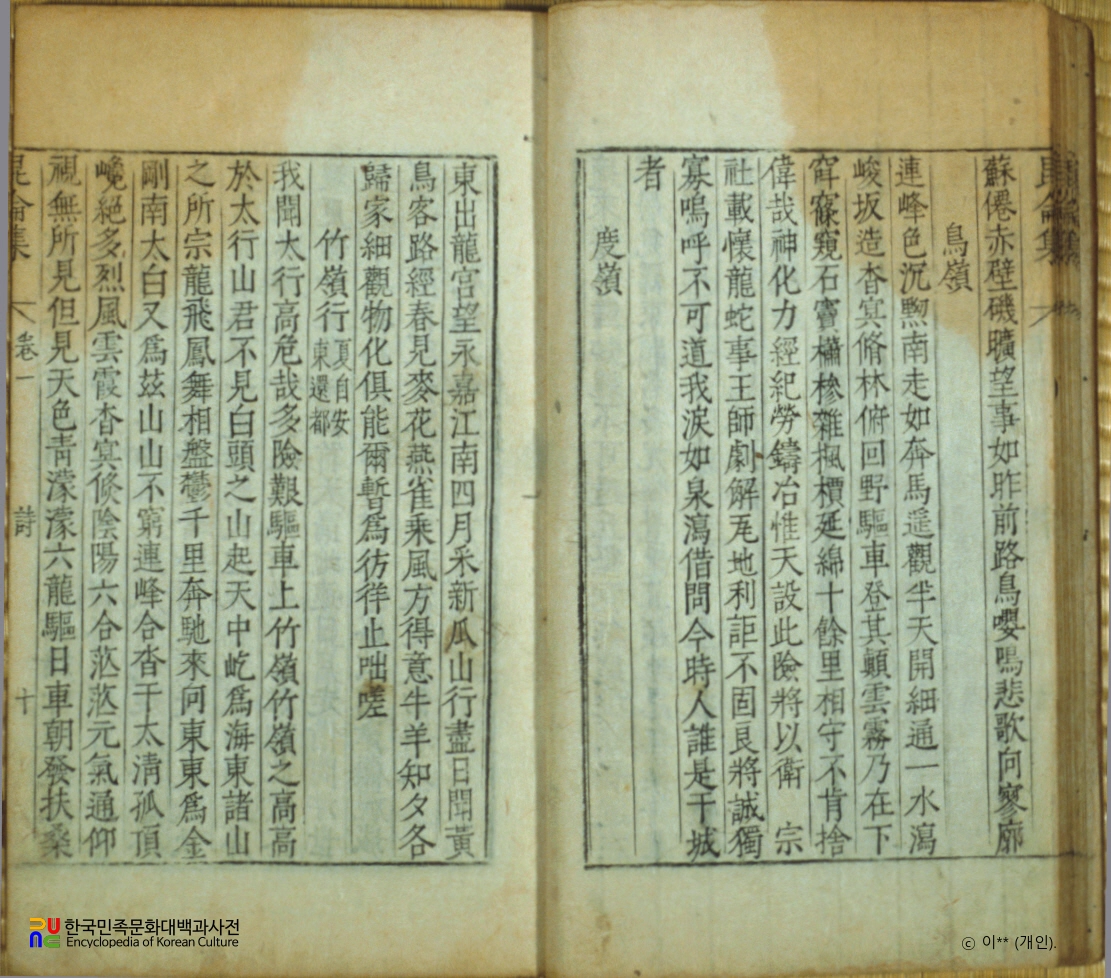 昆侖集
蘇僊赤壁磯曠望事如昨前路鳥嚶鳴悲歌向寥廓
鳥嶺
連峰色沉黝南走如奔馬遥觀半天開細通一水瀉
峻坂造杳冥脩林俯回野驅車登其顛雲霧乃在下
窅窱窺石竇橚槮雜楓檟延綿十餘里相守不肯捨
偉哉神化力經紀勞鑄冶惟天設此險將以衛 宗
社載懷龍蛇事王師劇解瓦地利詎不固良將誠獨
寡嗚呼不可道我淚如泉瀉借問今時人誰是干城
者
慶嶺
東出龍宮望永嘉江南四月采新瓜山行盡日聞黃
鳥客路經春見麥花燕雀乘風方得意牛羊知夕各
歸家細觀物化俱能爾暫爲彷徉止咄嗟
竹嶺行 夏自安東還都
我聞太行高危哉多險艱驅車上竹嶺竹嶺之高高
於太行山君不見白頭之山起天中屹爲海東諸山
之所宗龍飛鳳舞相盤鬱千里奔馳來向東東爲金
剛南太白又爲茲山山不窮連峰合沓干太淸孤頂
巉絕多烈風雲霞杳冥倏陰陽六合茫茫元氣通仰
視無所見但見天色靑濛濛六龍驅日車朝發扶桑
昆侖集 卷一 詩 十
한국민족문화대백과사전
Encyclopedia of Korean Culture
ⓒ 이** (개인).